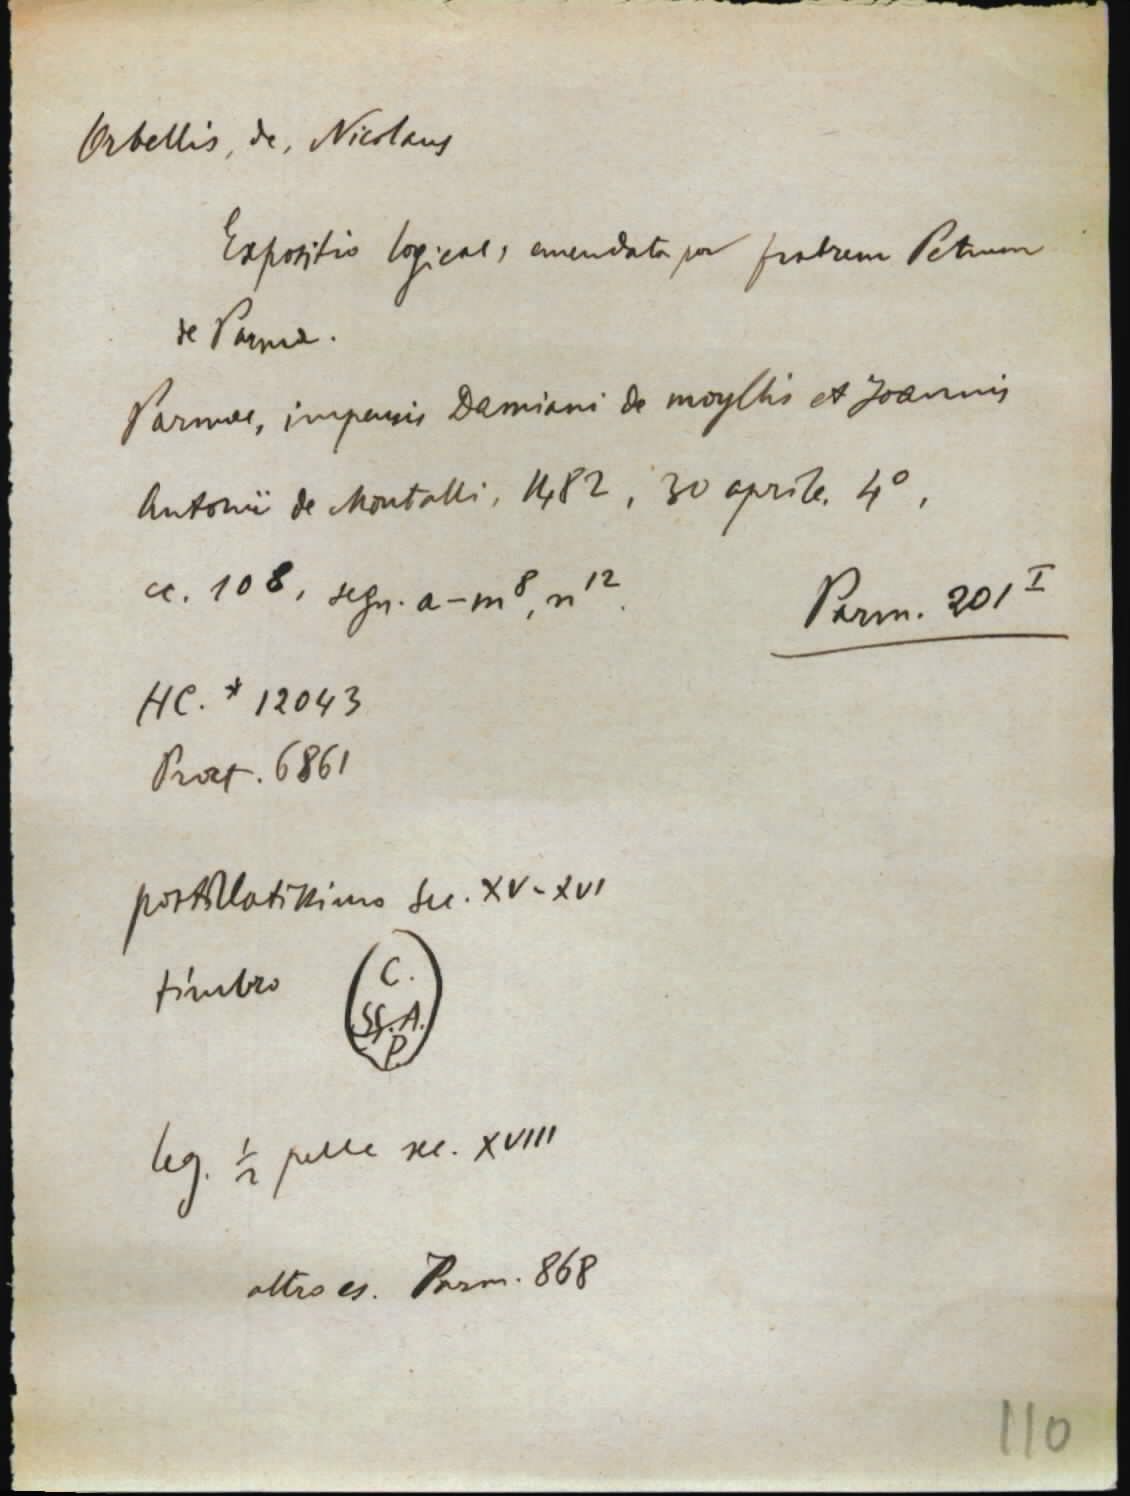 Orbellis, de, Nicolaus
Expositio logicae, emendata per fratrem Petrum
de Parma.
Parmae, impensis Damiani de moyllis et Joannis
Antonii de Montalli, 1482, 30 aprile. 4°,
cc. 108, segn. a-m⁸, n¹².
Parm. 201ᴵ
HC. * 12043
Proct. 6861
postillatissimo sec. XV-XVI
timbro
C.
SS. A.
P.
leg. ½ pelle sec. XVIII
altro es. Parm. 868
110